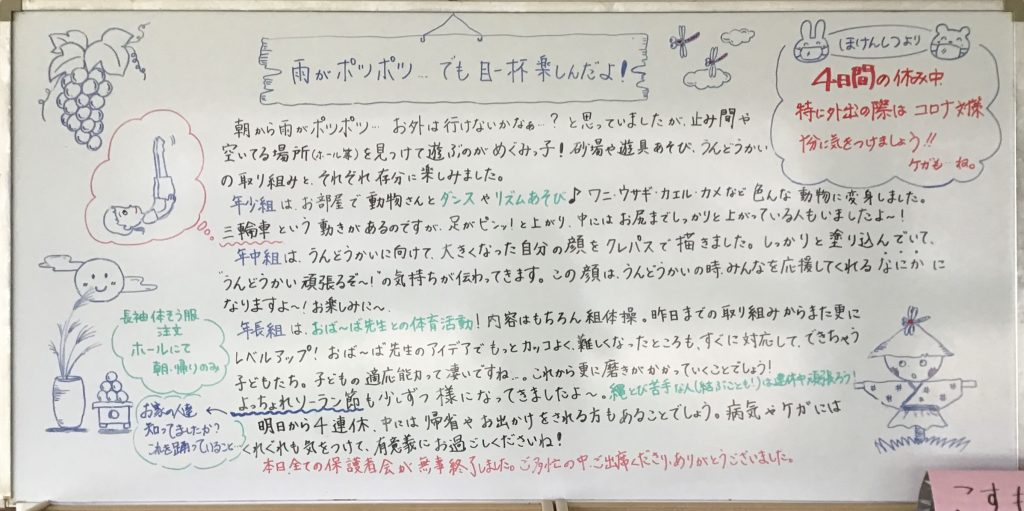 雨がポツポツ…でも目一杯楽しんだよ！
ほけんしつより
4日間の休み中
特に外出の際は コロナ対策
十分に気をつけましょう!!
ケガも…ね。
朝から雨がポツポツ… お外は行けないかなぁ…？と思っていましたが、止み間や
空いてる場所(ホール等)を見つけて遊ぶのがめぐみっ子！砂場や遊具あそび、うんどうかい
の取り組みと、それぞれ存分に楽しみました。
年少組は、お部屋で動物さんとダンスやリズムあそび♪ワニ・ウサギ・カエル・カメなど色んな動物に変身しました。
三輪車という動きがあるのですが、足がピンッ！と上がり、中にはお尻までしっかりと上がっている人もいましたよ〜！
年中組は、うんどうかいに向けて、大きくなった自分の顔をクレパスで描きました。しっかりと塗り込んでいて、
"うんどうかい頑張るぞ〜!"の気持ちが伝わってきます。この顔は、うんどうかいの時、みんなを応援してくれるなにかに
なりますよ〜！お楽しみに〜.
年長組は、おば〜ば先生との体育活動！内容はもちろん組体操。昨日までの取り組みからまた更に
レベルアップ！おば〜ば先生のアイデアでもっとカッコよく、難しくなったところも、すぐに対応して、できちゃう
子どもたち。子どもの適応能力って凄いですね…。これから更に磨きがかかっていくことでしょう！
よっちょれソーラン節も少しずつ様になってきましたよ〜。縄とび苦手な人(結ぶことも!)は連休中頑張ろう！
明日から4連休、中には帰省やお出かけをされる方もあることでしょう。病気やケガには
くれぐれも気をつけて、有意義にお過ごしくださいね！
本日全ての保護者会が無事終了しました。ご多忙の中、ご出席くださり、ありがとうございました。
長袖体そう服
注文
ホールにて
朝・帰りのみ
お家の人達
知ってましたか？
これを踊っていること…
こすも